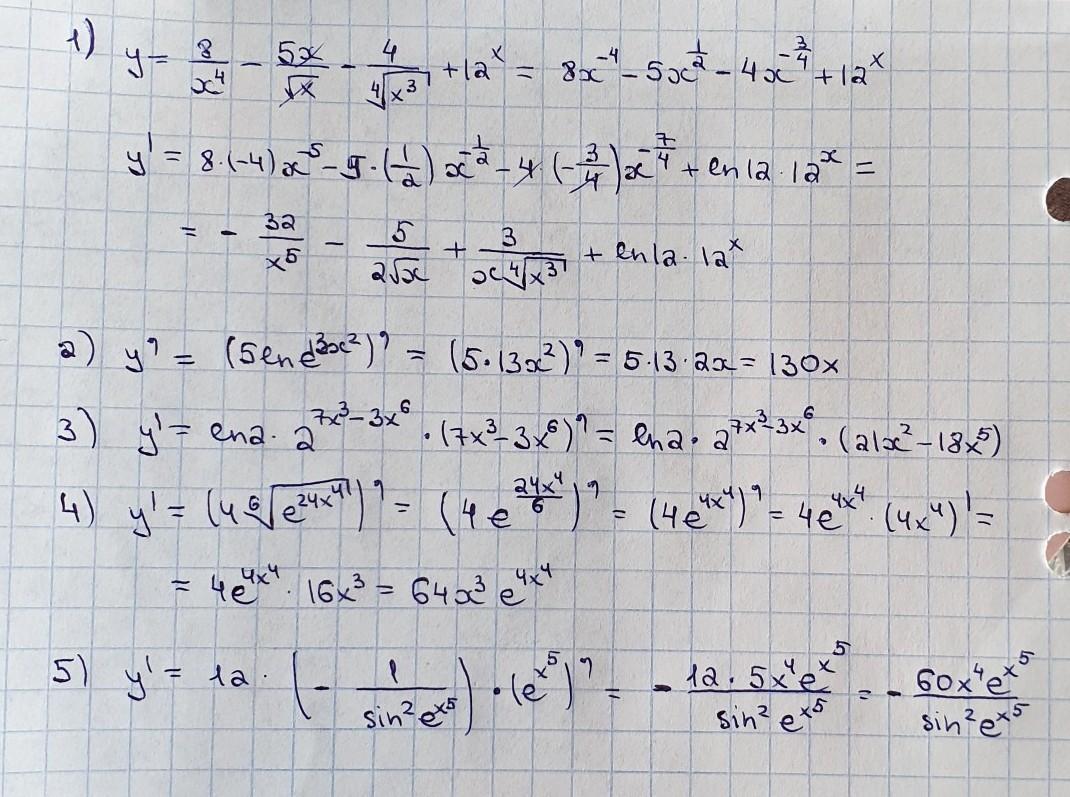 1) y = 8/x⁴ − 5x/√x − 4/⁴√(x³) + 12ˣ = 8x⁻⁴ − 5x^(1/2) − 4x^(−3/4) + 12ˣ
y' = 8·(−4)x⁻⁵ − 5·(1/2)x^(−1/2) − 4·(−3/4)x^(−7/4) + ln12·12ˣ =
= − 32/x⁵ − 5/(2√x) + 3/(x⁴√(x³)) + ln12·12ˣ
2) y' = (5ln e^(13x²))' = (5·13x²)' = 5·13·2x = 130x
3) y' = ln2·2^(7x³−3x⁶)·(7x³−3x⁶)' = ln2·2^(7x³−3x⁶)·(21x²−18x⁵)
4) y' = (4 ⁶√(e^(24x⁴)))' = (4e^(24x⁴/6))' = (4e^(4x⁴))' = 4e^(4x⁴)·(4x⁴)' =
= 4e^(4x⁴)·16x³ = 64x³ e^(4x⁴)
5) y' = 12·(−1/(sin²e^(x⁵)))·(e^(x⁵))' = −(12·5x⁴e^(x⁵))/(sin²e^(x⁵)) = −(60x⁴e^(x⁵))/(sin²e^(x⁵))